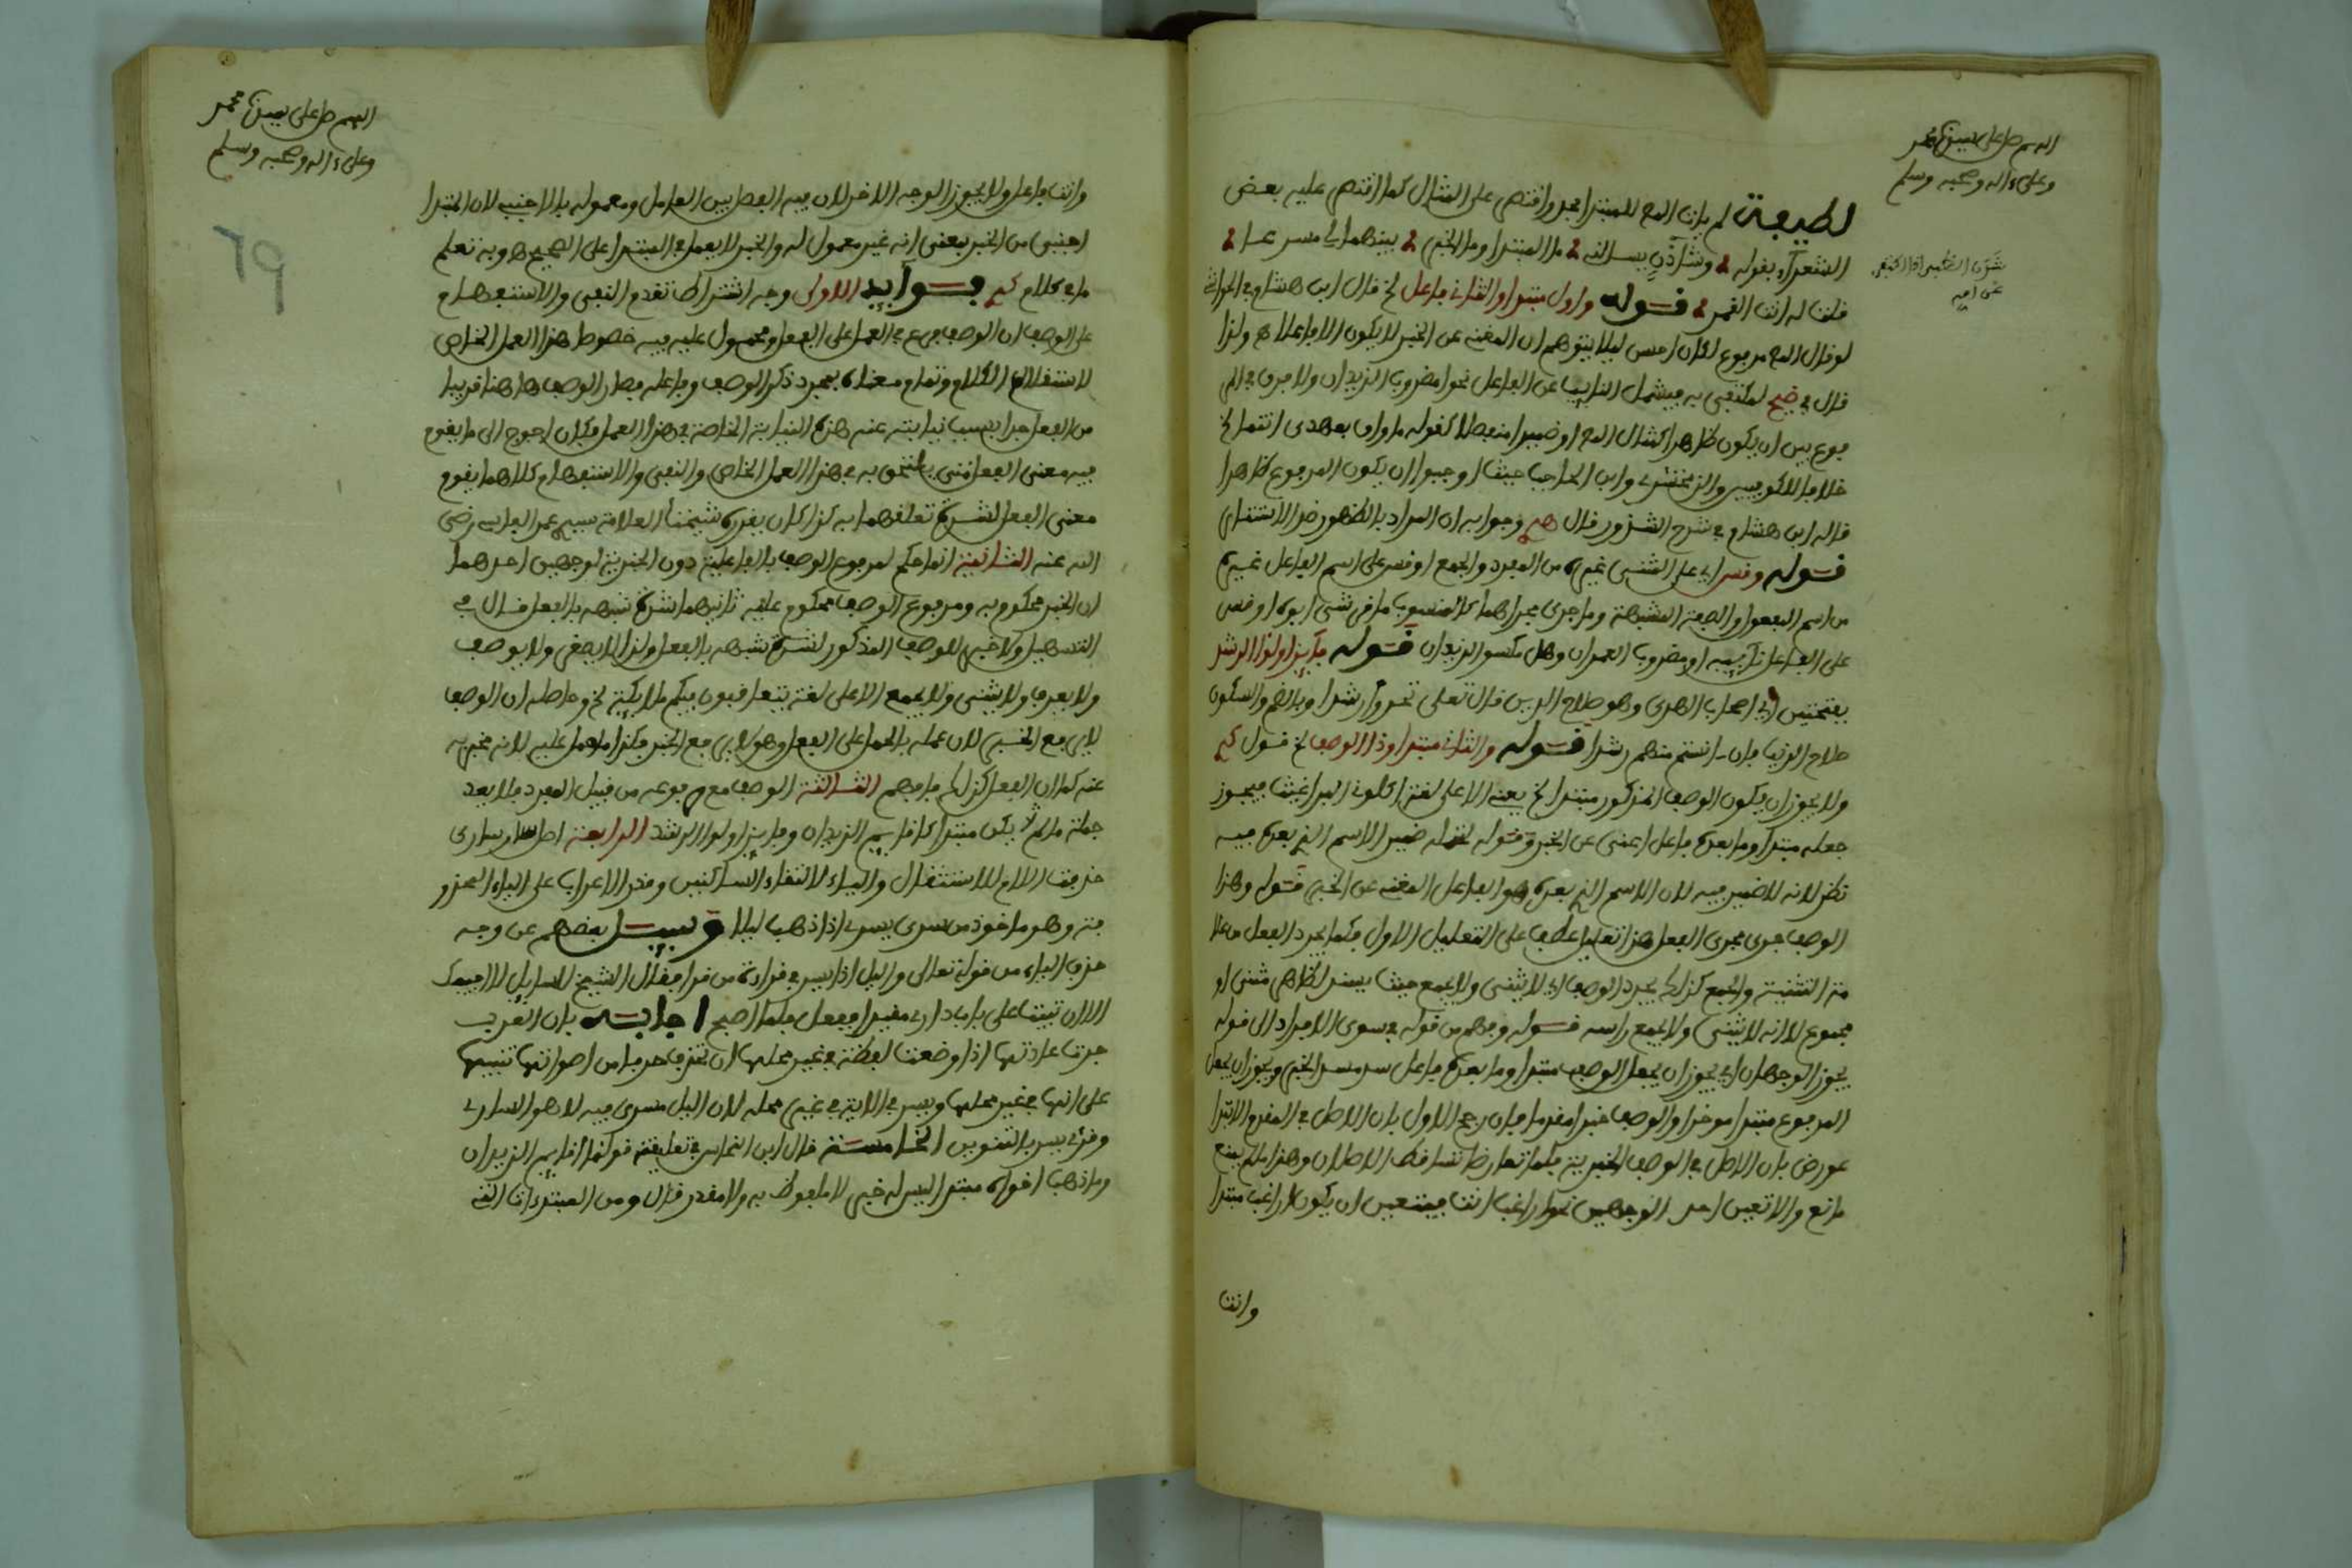 اللهم صل على سيدنا محمد
وعلى ءاله وصحبه وسلم
لطيفة لم يات المص للمبتدا بحد واقتصر على المثال كما اقتصر عليه بعض
الشعراء بقوله وشاذن يسالنى ما المبتدا وما الخبر بينهما لى مسرعا
فقلت له انت القمر قوله واول مبتدا والثانى فاعل لخ قال ابن هشام فى الحواشى
لو قال المص مرفوع لكان احسن ليلا يتوهم ان المغنى عن الخبر لا يكون الا فاعلا ه ولذا
قال فى ضيح لمكتفى به فيشمل النايب عن الفاعل نحو امضروب الزيدان ولا فرق فى المر
فوع بين ان يكون ظاهرا كمثال المص او ضميرا منفصلا كقوله ما واف بعهدى انتما لخ
خلافا للكوفيين والزمخشرى وابن الحاجب حيث اوجبوا ان يكون المرفوع ظاهرا
قاله ابن هشام فى شرح الشذور قال وجوابه ان المراد بالظهور ضد الاستتار
قوله وقس اى على المثنى غيره من المفرد والجمع او قس على اسم الفاعل غيره
من اسم المفعول والصفة المشبهة وما جرى مجراهما كالمنسوب ما قرشى ابوك او قس
على الفاعل نايبه امضروب العمران وهل مكسو الزيدان قوله فايز اولوا الرشد
بفتحتين اى اصحاب الهدى وهو صلاح الدين قال تعلى تحروا رشدا وبالضم والسكون
صلاح الدنيا فان ءانستم منهم رشدا قوله والثان مبتدا وذا الوصف لخ قول
ولا يجوز ان يكون الوصف المذكور مبتدا لخ يعنى الا على لغة اكلونى البراغيث فيجوز
جعله مبتدا وما بعده فاعل اغنى عن الخبر وقوله ضمير الاسم الذى بعده فيه
نظر لانه لا ضمير فيه لان الاسم الذى بعده هو الفاعل المغنى عن الخبر قوله وهذا
الوصف جرى مجرى الفعل هذا تعليل عطف على التعليل الاول فكما يجرد الفعل من علا
مة التثنية والجمع كذلك يجرد الوصف اى لا يثنى ولا يجمع حيث يسند لظاهر مثنى او
مجموع لانه لا يثنى ولا يجمع راسه قوله وفهم من قوله فى سوى الافراد الى قوله
يجوز الوجهان اى يجوز ان يجعل الوصف مبتدا وما بعده فاعل سد مسد الخبر ويجوز ان يجعل
المرفوع مبتدا موخرا والوصف خبرا مقدما فان رجح الاول بان الاصل فى المقدم الابتدا
عورض بان الاصل فى الوصف الخبرية فلما تعارضا تساقط الاصلان وهذا ما لم يمنع
مانع والا تعين احد الوجهين نحو اراغب انت فيتعين ان يكون اراغب مبتدا
وانت
اللهم صل على سيدنا محمد
وعلى ءاله وصحبه وسلم
79
وانت فاعل ولا يجوز الوجه الاخر لان فيه الفصل بين العامل ومعموله بالاجنبى لان المبتدا
اجنبى من الخبر بمعنى انه غير معمول له والخبر لا يعمل فى المبتدا على الصحيح ه وبه تعلم
ما فى كلام فوايد الاولى وجه اشتراط تقدم النفى والاستفهام
على الوصف ان الوصف فرع فى العمل على الفعل ومحمول عليه فيه خصوصا هذا العمل الخاص
لاستقلال الكلام وتمام معناه بمجرد ذكر الوصف وفاعله فصار الوصف هاهنا قريبا
من الفعل جدا بسبب نيابته عنه هذه النيابة الخاصة فى هذا العمل فكان احوج الى ما يقوم
فيه معنى الفعل حتى يلتحق به فى هذا العمل الخاص والنفى والاستفهام كلاهما يقوم
معنى الفعل لشدة تعلقهما به كذا كان يقرره شيخنا العلامة سيدى عمر الفاسى رضى
الله عنه الثانية انما حكم لمرفوع الوصف بالفاعلية دون الخبرية لوجهين احدهما
ان الخبر محكوم به ومرفوع الوصف محكوم عليه ثانيهما شدة شبهه بالفعل قال فى
التسهيل ولا خبر للوصف المذكور لشدة شبهه بالفعل ولذا لا يصغر ولا يوصف
ولا يعرف ولا يثنى ولا يجمع الا على لغة يتعاقبون فيكم ملائكة لخ وحاصله ان الوصف
لا ياتى مع الخبر لان عمله بالحمل على الفعل وهو لا ياتى مع الخبر فكذا ما حمل عليه لانه مخبر به
عنه كما ان الفعل كذلك فافهم الثالثة الوصف مع مرفوعه من قبيل المفرد فلا يعد
جملة ما لم يكن مبتدا كاقايم الزيدان وفايز اولوا الرشد الرابعة اصل سار سارى
حذفت اللام للاستثقال والياء لالتقاء الساكنين وقدر الاعراب على الياء المحذو
فة وهو ماخوذ من سرى يسرى اذا ذهب ليلا وسيل بعضهم عن وجه
حذف الياء من قوله تعالى واليل اذا يسر فى قراءة من قرا فقال الشيخ للسايل لا اجيبك
الا ان تبيت على باب دارى مقيدا ففعل فلما اصبح اجابه بان العرب
جرت عادتها اذا وضعت لفظة فى غير محلها ان تحذف حرفا من اصواتها تنبيها
على انها فى غير محلها ويسر فى الاية فى غير محله لان اليل مسرى فيه لا هو السارى
وقرئ يسر بالتنوين الخامسة قال ابن النحاس فى تعليقه قولك اقايم الزيدان
وما ذهب اخواك مبتدا ليس له خبر لا ملفوظ به ولا مقدر قال ومن المبتدءات التى